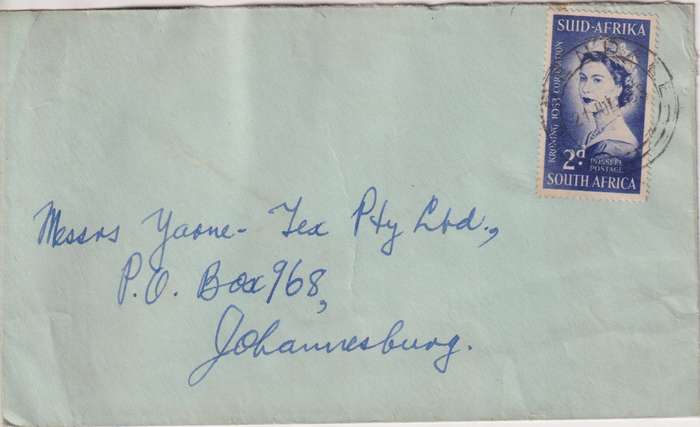 SUID-AFRIKA
KRONING 1953 CORONATION
2d
POSSEËL
POSTAGE
SOUTH AFRICA
Messrs Yarne-Tex Pty Ltd.,
P.O. Box 968,
Johannesburg.